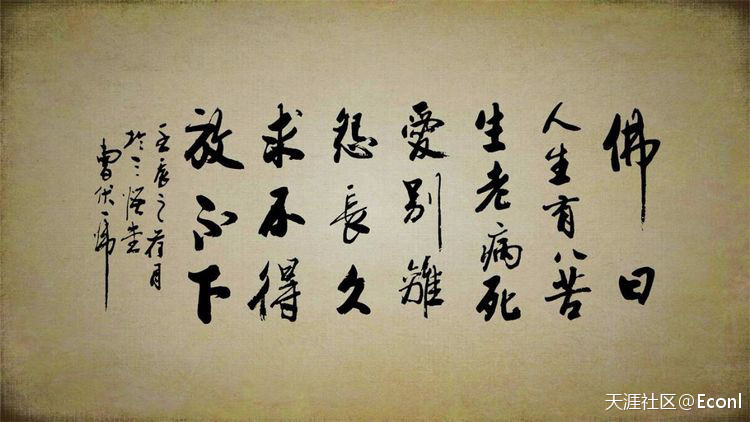 佛曰
人生有八苦
生老病死
愛别離
怨長久
求不得
放不下
壬辰之荷月
於三悟堂
曹伏
天涯社区@Econl